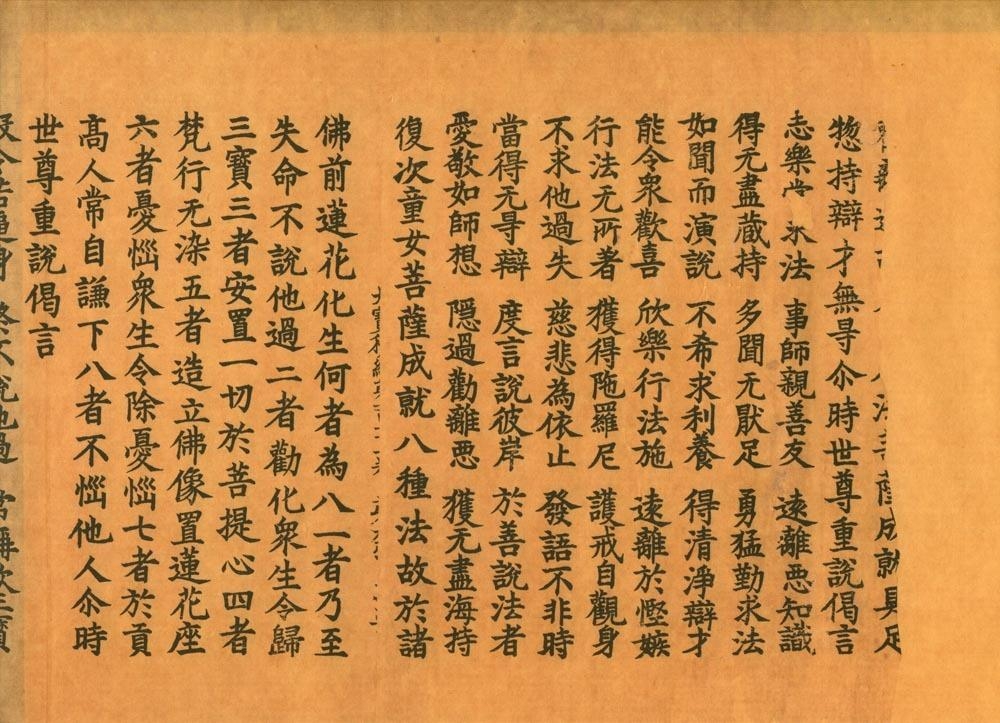 成就具足
惣持辯才無㝵尒時世尊重說偈言
志樂常求法 事師親善友 遠離悪知識
得无盡蔵持 多聞无猒足 勇猛勤求法
如聞而演說 不希求利養 得清淨辯才
能令衆歡喜 欣樂行法施 遠離於慳嫉
行法无所著 獲得陁羅尼 護戒自觀身
不求他過失 慈悲為依止 發語不非時
當得无㝵辯 度言說彼岸 於善說法者
愛敬如師想 隠過勸離悪 獲无盡海持
復次童女菩薩成就八種法故於諸
佛前蓮花化生何者為八一者乃至
失命不說他過二者勸化衆生令歸
三寶三者安置一切於菩提心四者
梵行无染五者造立佛像置蓮花座
六者憂惱衆生令除憂惱七者於貢
髙人常自謙下八者不惱他人尒時
世尊重說偈言